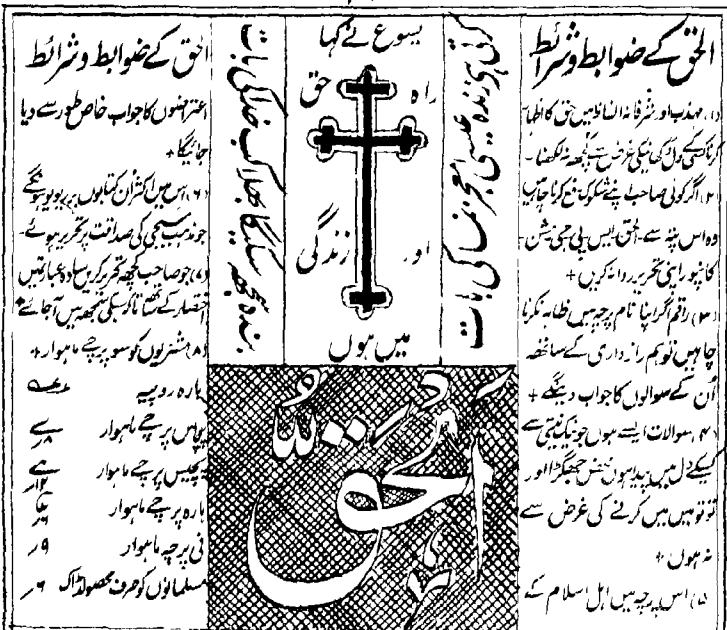 الحق کے ضوابط و شرائط
(۱) مہذب اور شرفانہ الفاظ میں حق کا اظہار
کرنا کسی کی دل
(۲) اگر کوئی صاحب اپنے شکوک رفع کرنا چاہیں
وہ اس پتہ سے۔ الحق ایس پی جی مشن۔
کانپور اپنی تحریر روانہ کریں +
(۳) راقم اگر اپنا نام پرچہ میں ظاہر نہ کرنا
چاہیں تو ہم رازداری کے ساتھ
اُن کے سوالوں کا جواب دینگے +
(۴) سوالات ایسے ہوں جو نیک نیتی سے
کسیکے دل میں پیدا ہوں محض جھگڑا اور
تو تو میں میں کرنے کی غرض سے
نہ ہوں +
(۵) اس پرچہ میں اہل اسلام کے
کرتی ہے زندہ عیسیٰ معجز نما کی بات
یسوع نے کہا
راہ حق
اور زندگی
میں ہوں
بندہ سمجھ سکیگا بھلا کب خدا کی بات
الحق
الحق کے ضوابط و شرائط
اعتراضوں کا جواب خاص طور سے دیا
جائیگا +
(۶) اس میں اکثر ان کتابوں پر ریویو ہونگے
جو مذہب مسیحی کی صداقت پر تحریر ہوئے۔
(۷) جو صاحب کچھ تحریر کریں سادہ عبارتیں
اختصار کے ساتھ تاکہ سبکی سمجھ میں آجائے +
(۸) مشتریوں کو سو پرچے ماہوار +
بارہ روپیہ
پچاس پرچے ماہوار
پچیس پرچے ماہوار
بارہ پرچے ماہوار
فی پرچہ ماہوار ۹ر
مسلمانوں کو صرف محصولڈاک ۶ر